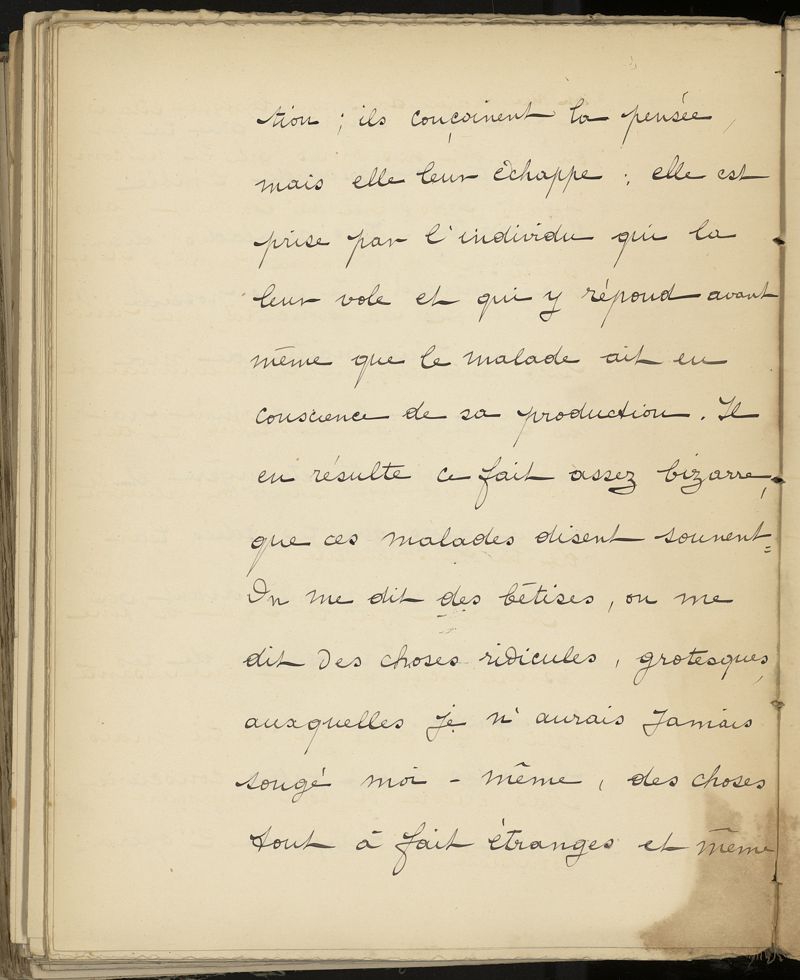 tion ; ils conçoivent la pensée,
mais elle leur échappe ; elle est
prise par l'individu qui la
leur vole et qui y répond avant
même que le malade ait eu
conscience de sa production. Il
en résulte ce fait assez bizarre,
que ces malades disent souvent =
On me dit des bêtises, on me
dit des choses ridicules, grotesques,
auxquelles je n'aurais jamais
songé moi-même, des choses
tout à fait étranges et même